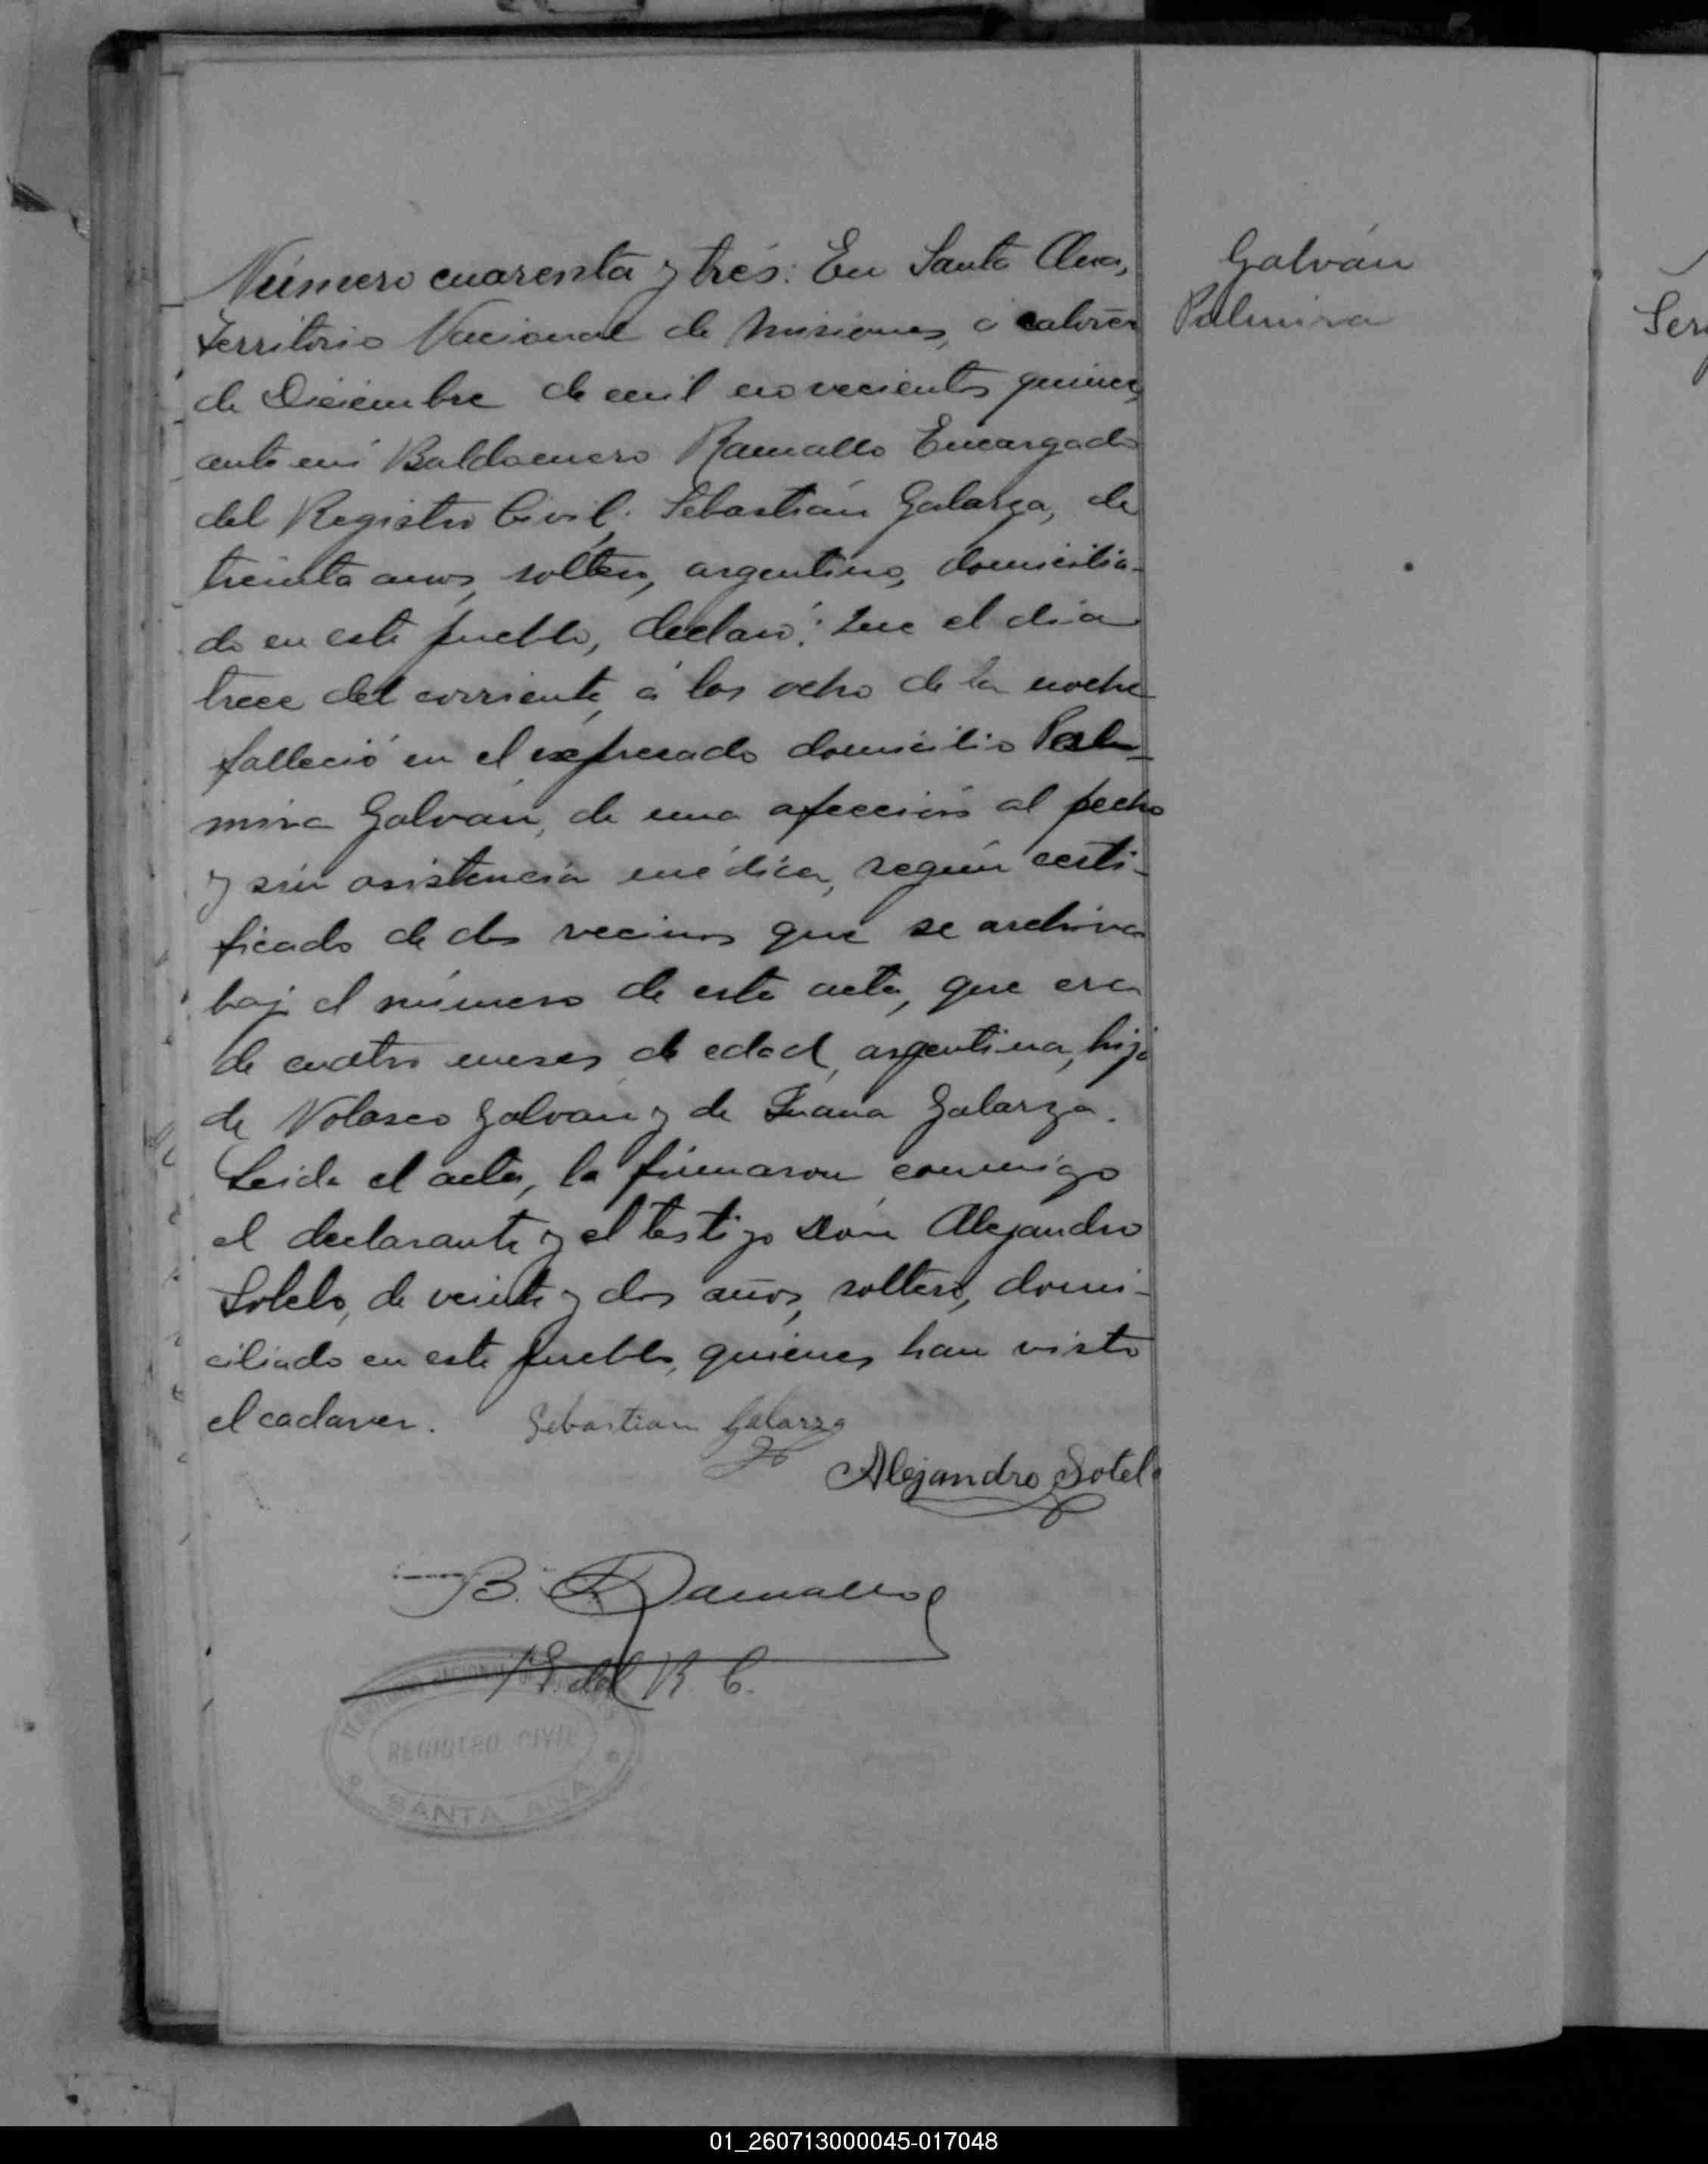 Número cuarenta y trés: En Santa Ana,
Territorio Nacional de Misiones, á catorce
de Diciembre de mil novecientos quince,
ante mi Baldomero Ramallo Encargado
del Registro Civil; Sebastián Galarza, de
treinta anos, soltero, argentino, domicilia-
do en este pueblo, declaró: Que el dia
trece del corriente, á las ocho de la noche
falleció en el expresado domicilio Pal-
mira Galván, de una afección al pecho
y sin asistencia médica, según certi-
ficado de dos vecinos que se archiva
bajo el número de esta acta, que era
de cuatro meses de edad, argentina, hija
de Nolasco Galván y de Juana Galarza.
Leida el acta, la firmaron conmigo
el declarante y el testigo Dón Alejandro
Sotelo, de veinte y dos años, soltero, domi-
ciliado en este pueblo, quiénes han visto
el cadaver. Sebastian Galarza
Alejandro Sotelo
B. Ramallo
E. del R. C.
REGISTRO CIVIL
SANTA ANA
Galván
Palmira
01_260713000045-017048